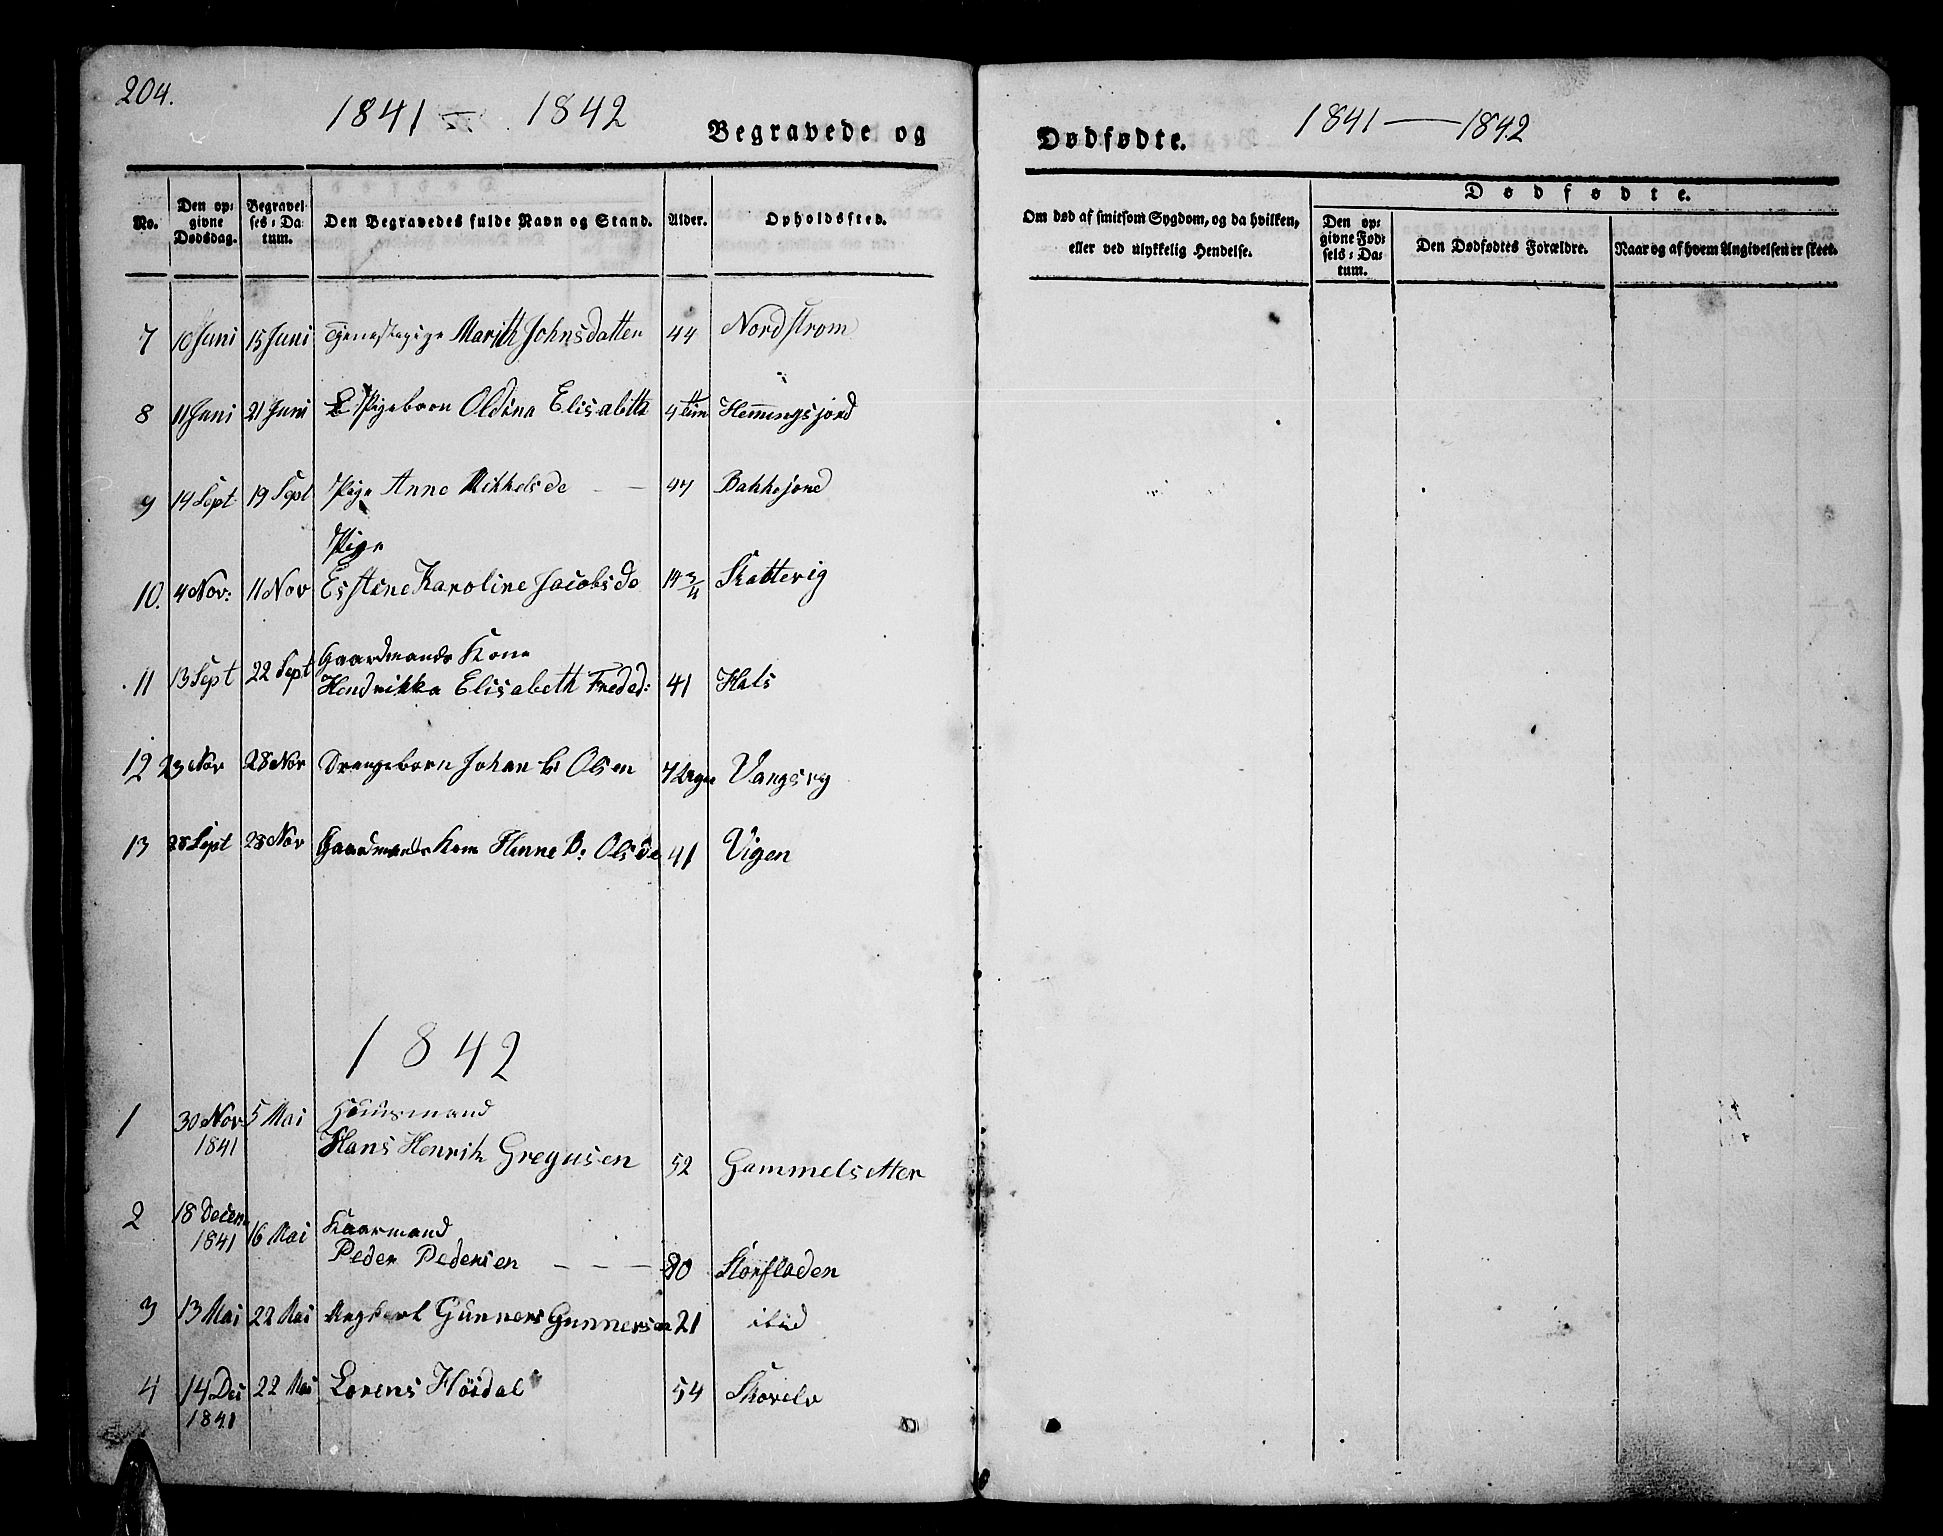 204.
1841 — 1842
Begravede og
No.
Den opgivne Dødsdag.
Begravelses-Datum.
Den Begravedes fulde Navn og Stand.
Alder.
Opholdssted.
7 10 Juni 15 Juni Tjenestepige Marith Johnsdatter 44 Nordstrøm
8 11 Juni 21 Juni Pigebarn Oldina Elisabeth 4 Hemmingsjord
9 14 Sept 19 Sept Pige Anne Mikkelsd 47 Bakkejord
Pige
10. 4 Nov: 11 Nov Karoline Jacobsd 14 3/4 Skattevig
Gaardmands Kone
11 13 Sept 22 Sept Hendrikka Elisabeth Freded: 41 Hals
12 23 Nov 28 Nov Drengebarn Johan Olsen 7 Vangsvg
13 28 Sept 28 Nov Gaardmands Kone Hanne B: Olsd 41 Vigen
1842
1 30 Nov 5 Mai Huusmand
1841 Hans Henrik Gregusen 52 Gammelsetter
2 18 Decem 16 Mai Kaarmand
1841 Peder Pedersen — — — 80 Storfladen
3 13 Mai 22 Mai Ungkarl Gunners Gunnersen 21 ibid
4 14 Des 22 Mai Lorens Höidal 54 Skovelv
1841
Dødfødte.
1841 — 1842
Om død af smitsom Sygdom, og da hvilken,
eller ved ulykkelig Hendelse.
Dødfødte.
Den opgivne Fødsels-Datum.
Den Dødfødtes Forældre.
Naar og af hvem Angivelsen er skeet.